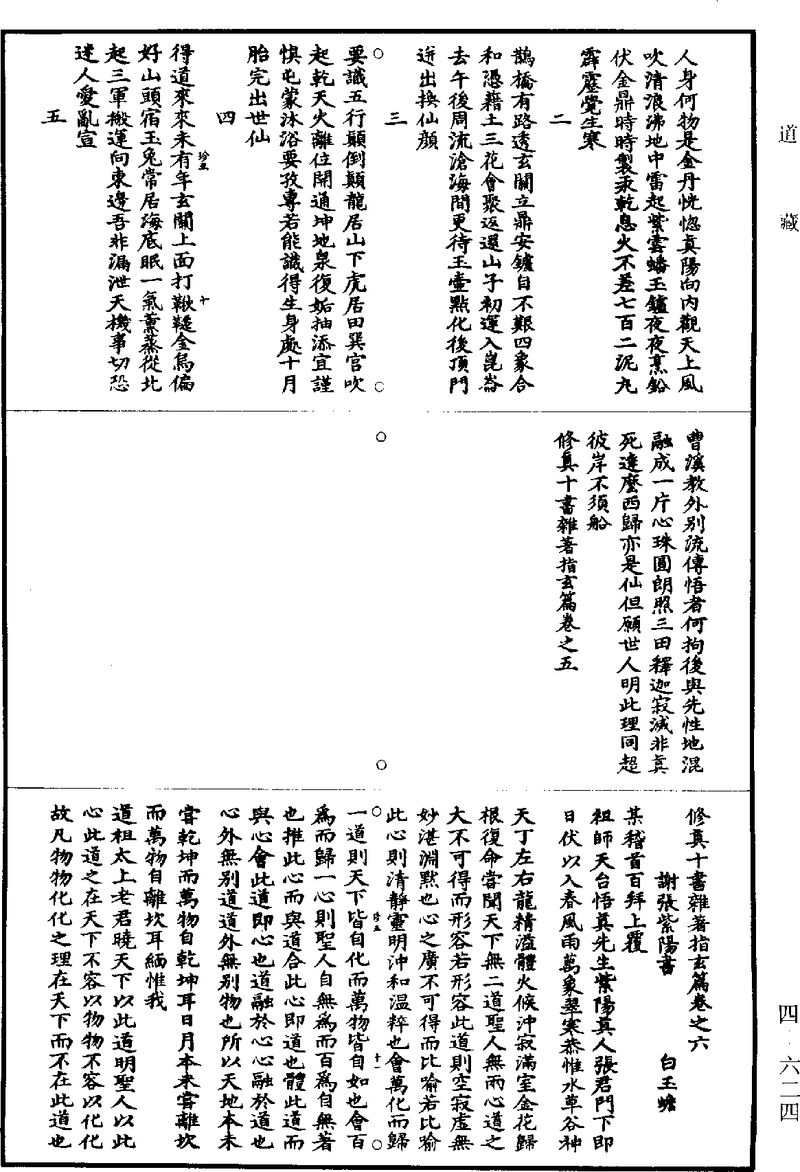 道藏
人身何物是金丹恍惚真陽向内觀天上風
吹清浪沸地中雷起紫雲蟠玉鑪夜夜烹鉛
伏金鼎時時製汞乾息火不差七百二泥丸
霹靂覺生寒
二
鵲橋有路透玄關立鼎安鑪自不艱四象合
和憑藉土三花會聚返還山子初運入崑崙
去午後周流滄海間更待玉壺點化後頂門
迸出換仙顏
三
要識五行顛倒顛龍居山下虎居田巽宮吹
起乾天火離位開通坤地泉復姤抽添宜謹
慎屯蒙沐浴要孜專若能識得生身處十月
胎完出世仙
四
得道來來未有年玄關上面打鞦韆金烏偏
好山頭宿玉兔常居海底眠一氣薰蒸從北
起三軍搬運向東邊吾非漏泄天機事切恐
迷人愛亂宣
五
珍五
十
曹溪教外别流傳悟者何拘後與先性地混
融成一片心珠圓朗照三田釋迦寂滅非真
死達麼西歸亦是仙但願世人明此理同超
彼岸不須船
修真十書雜著指玄篇卷之五
修真十書雜著指玄篇卷之六
謝張紫陽書 白玉蟾
某稽首百拜上覆
祖師天台悟真先生紫陽真人張君門下即
日伏以入春風雨萬象翠寒恭惟水草谷神
天丁左右龍精溢體火候沖寂滿室金花歸
根復命嘗聞天下無二道聖人無兩心道之
大不可得而形容若形容此道則空寂虛無
妙湛淵默也心之廣不可得而比喻若比喻
此心則清靜靈明沖和温粹也會萬化而歸
一道則天下皆自化而萬物皆自如也會百
為而歸一心則聖人自無為而百為自無著
也推此心而與道合此心即道也體此道而
與心會此道即心也道融於心心融於道也
心外無别道道外無别物也所以天地本未
嘗乾坤而萬物自乾坤耳日月本未嘗離坎
而萬物自離坎耳緬惟我
道祖太上老君曉天下以此道明聖人以此
心此道之在天下不容以物物不容以化化
故凡物物化化之理在天下而不在此道也
珍五
十一
四·六二四